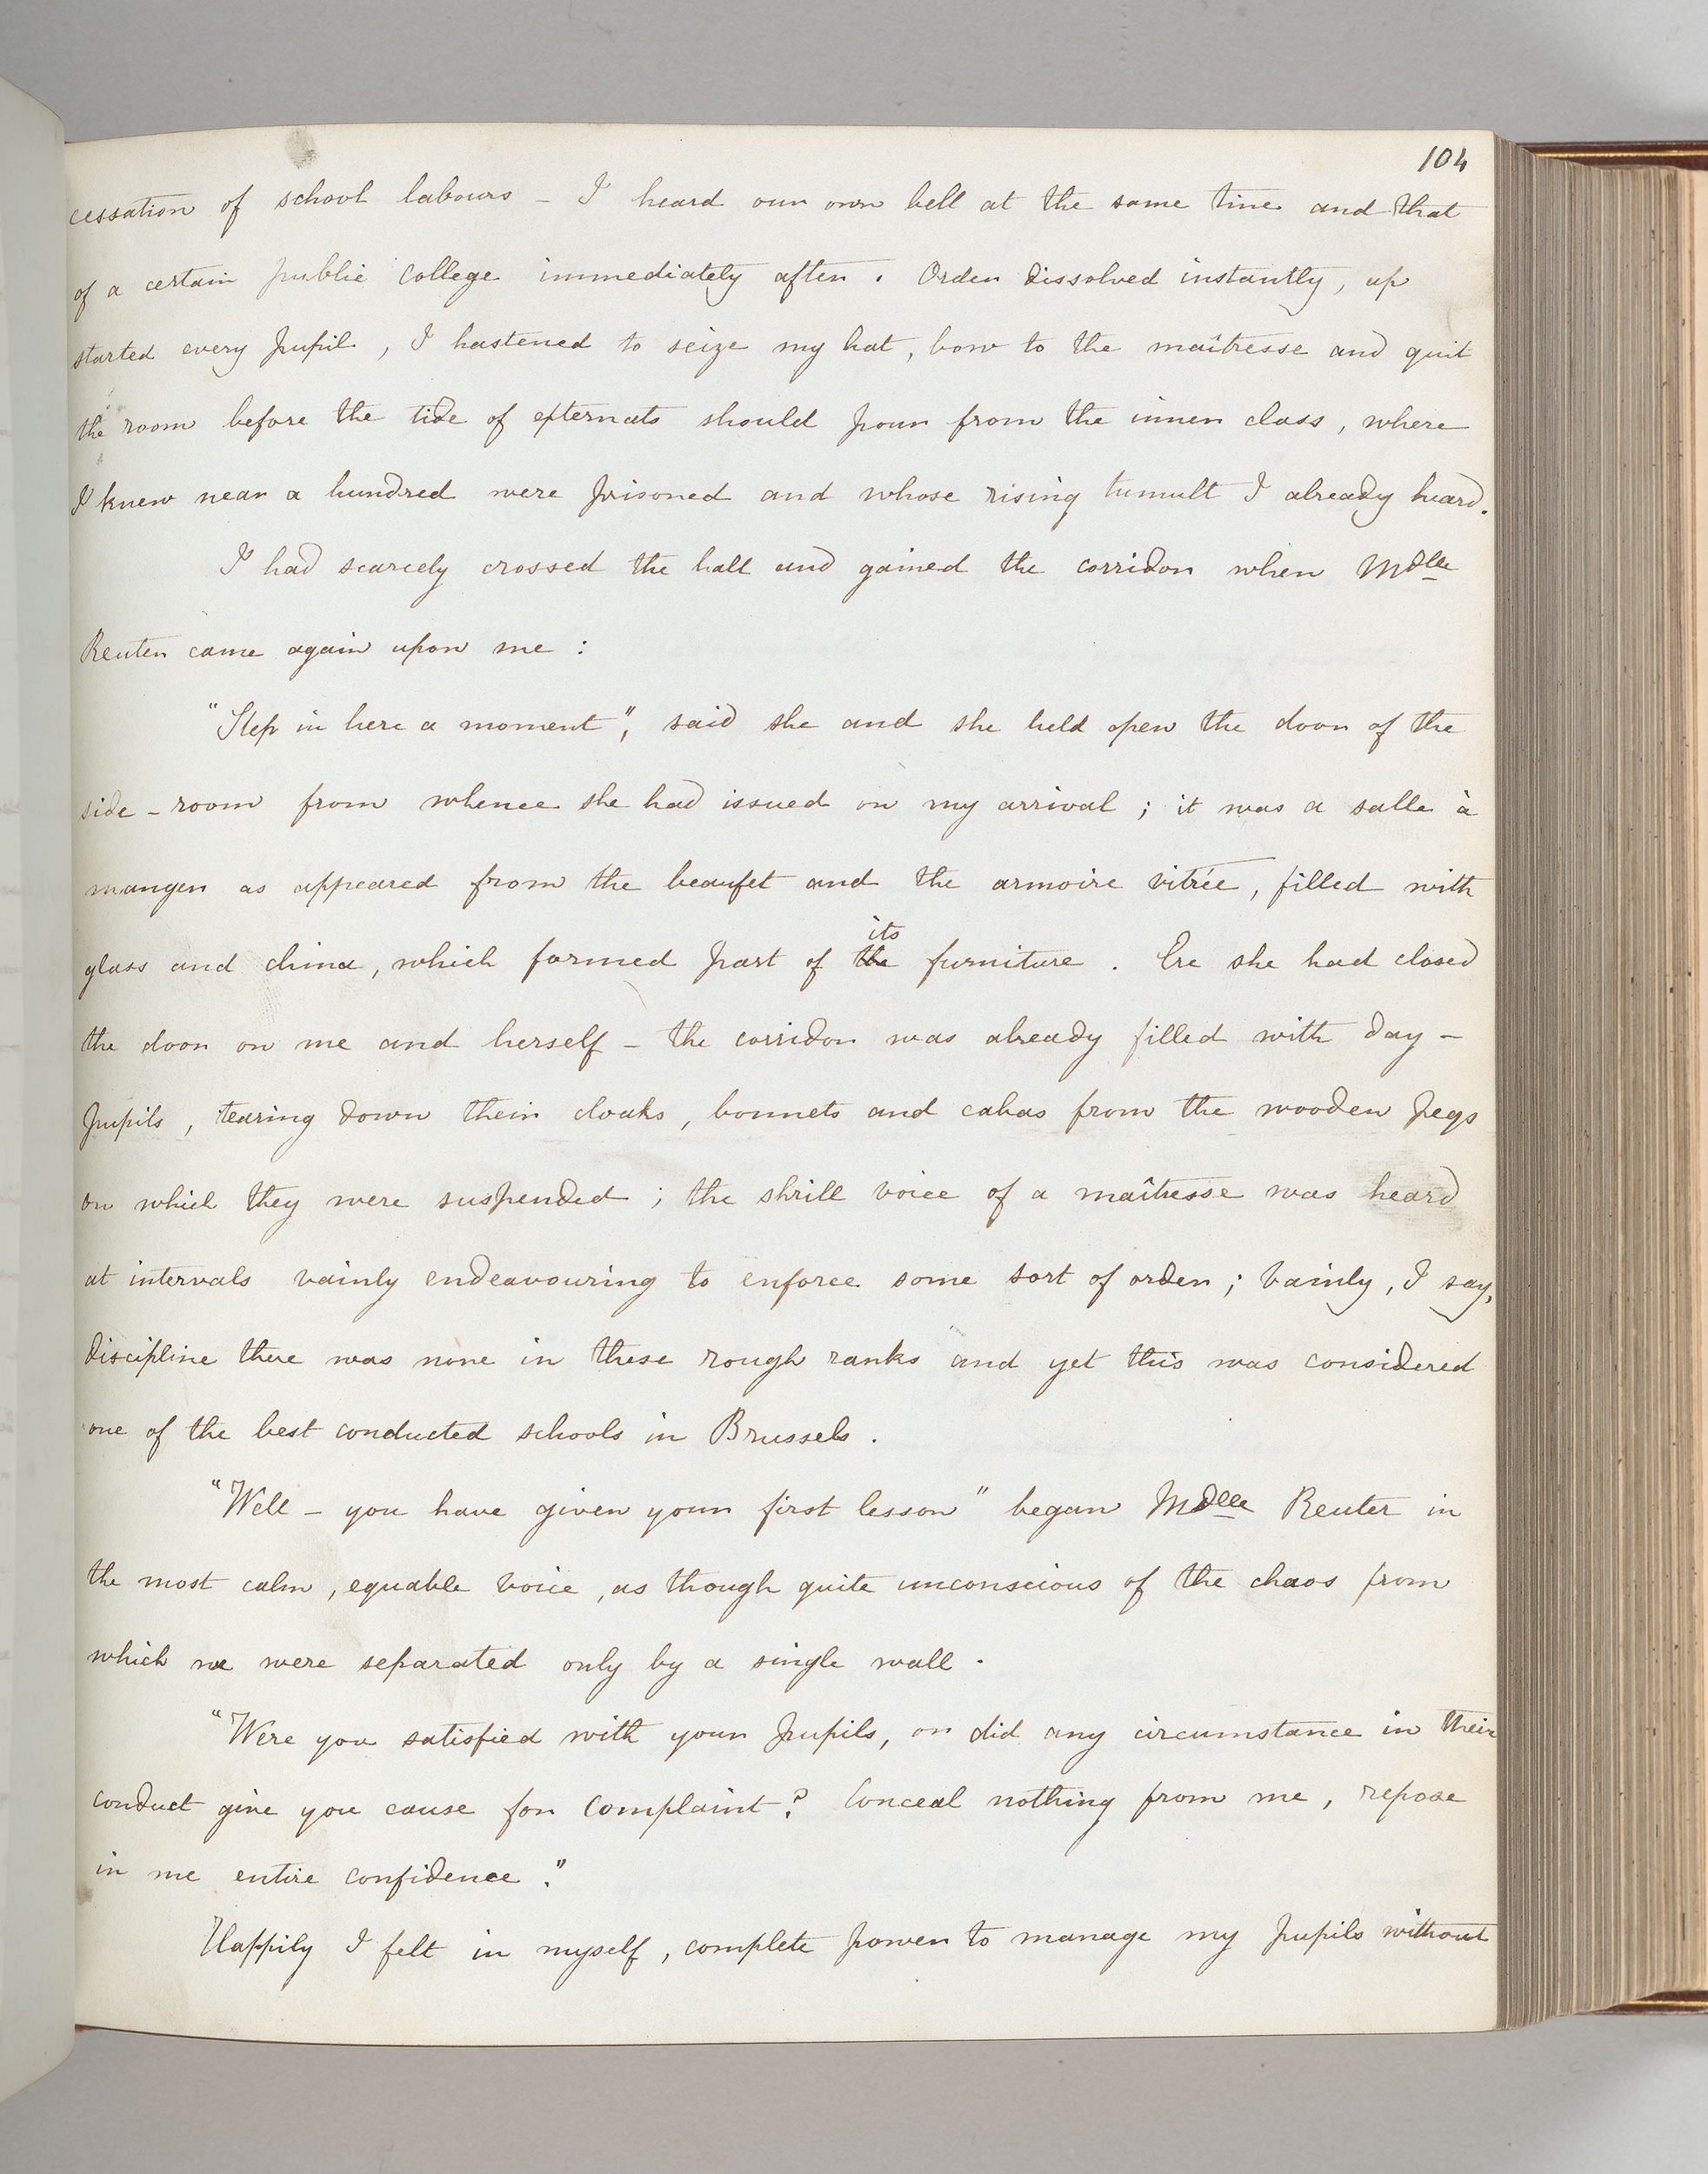 104
cessation of school labours – I heard our own bell at the same time and that
of a certain public college immediately after. Order dissolved instantly, up
started every pupil, I hastened to seize my hat, bow to the maîtresse and quit
the room before the tide of externats should pour from the inner class, where
I knew near a hundred were prisoned and whose rising tumult I already heard.
I had scarcely crossed the hall and gained the corridor when Mdlle
Reuter came again upon me :
"Step in here a moment", said she and she held open the door of the
side-room from whence she had issued on my arrival ; it was a salle à
manger as appeared from the beaufet and the armoire vitrée, filled with
glass and china, which formed part of the its furniture. Ere she had closed
the door on me and herself – the corridor was already filled with day-
pupils, tearing down their cloaks, bonnets and cabas from the wooden pegs
on which they were suspended ; the shrill voice of a maîtresse was heard
at intervals vainly endeavouring to enforce some sort of order ; vainly, I say,
discipline there was none in these rough ranks and yet this was considered
one of the best conducted schools in Brussels.
"Well – you have given your first lesson" began Mdlle Reuter in
the most calm, equable voice, as though quite unconscious of the chaos from
which we were separated only by a single wall.
"Were you satisfied with your pupils, or did any circumstance in their
conduct give you cause for complaint? Conceal nothing from me, repose
in me entire confidence."
Happily I felt in myself, complete power to manage my pupils without